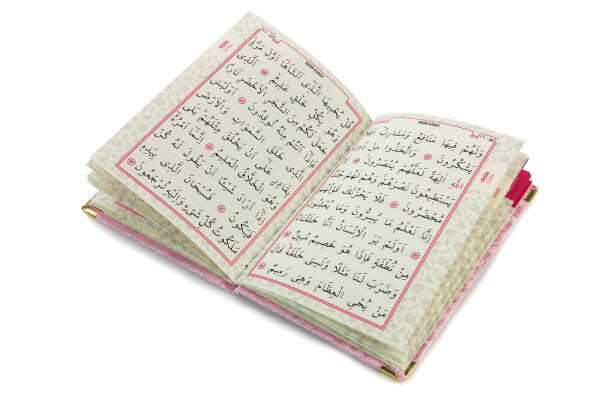 YÂSÎN SÛRESİ
وَلَهُمْ فِيهَا مَنَافِعُ وَمَشَارِبُ اَفَلَا
يَشْكُرُونَ وَاتَّخَذُوا مِنْ دُونِ
اللّٰهِ اٰلِهَةً لَعَلَّهُمْ يُنْصَرُونَ لَا
يَسْتَطِيعُونَ نَصْرَهُمْ وَهُمْ لَهُمْ جُنْدٌ
مُحْضَرُونَ فَلَا يَحْزُنْكَ قَوْلُهُمْ
اِنَّا نَعْلَمُ مَا يُسِرُّونَ وَمَا يُعْلِنُونَ
اَوَلَمْ يَرَ الْاِنْسَانُ اَنَّا خَلَقْنَاهُ
مِنْ نُطْفَةٍ فَاِذَا هُوَ خَصِيمٌ مُبِينٌ
وَضَرَبَ لَنَا مَثَلًا وَنَسِىَ خَلْقَهُ قَالَ
مَنْ يُحْيِ الْعِظَامَ وَهِىَ رَمِيمٌ
YÂSÎN
YÂSÎN SÛRESİ
قُلْ يُحْيِيهَا الَّذِى اَنْشَاَهَا اَوَّلَ مَرَّةٍ
وَهُوَ بِكُلِّ خَلْقٍ عَلِيمٌ اَلَّذِى
جَعَلَ لَكُمْ مِنَ الشَّجَرِ الْاَخْضَرِ نَارًا
فَاِذَا اَنْتُمْ مِنْهُ تُوقِدُونَ اَوَلَيْسَ
الَّذِى خَلَقَ السَّمٰوَاتِ وَالْاَرْضَ
بِقَادِرٍ عَلٰى اَنْ يَخْلُقَ مِثْلَهُمْ بَلٰى
وَهُوَ الْخَلَّاقُ الْعَلِيمُ اِنَّمَا اَمْرُهُ
اِذَا اَرَادَ شَيْئًا اَنْ يَقُولَ لَهُ كُنْ
فَيَكُونُ فَسُبْحَانَ الَّذِى بِيَدِهِ
مَلَكُوتُ كُلِّ شَىْءٍ وَاِلَيْهِ تُرْجَعُونَ
YÂSÎN